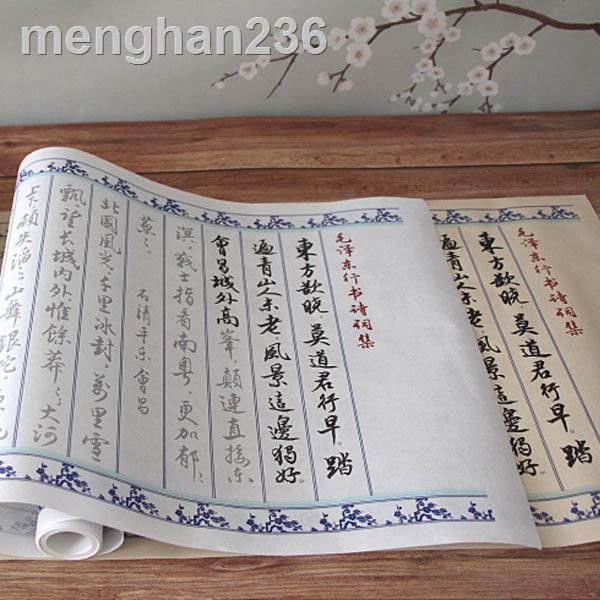 menghan236
毛泽东行书诗词集
東方欲晓,莫道君行早。踏
遍青山人未老,風景這邊獨好。
會昌城外高峯,顛連直接东
溟。战士指看南粤,更加郁
葱々。 右清平乐 會昌
北國風光,千里冰封,萬里雪
飘。望长城内外,惟餘莽々;大河
上下,頓失滔々。山舞銀蛇,原
毛泽东行书诗词集
東方欲晓,莫道君行早。踏
遍青山人未老,風景這邊獨好。